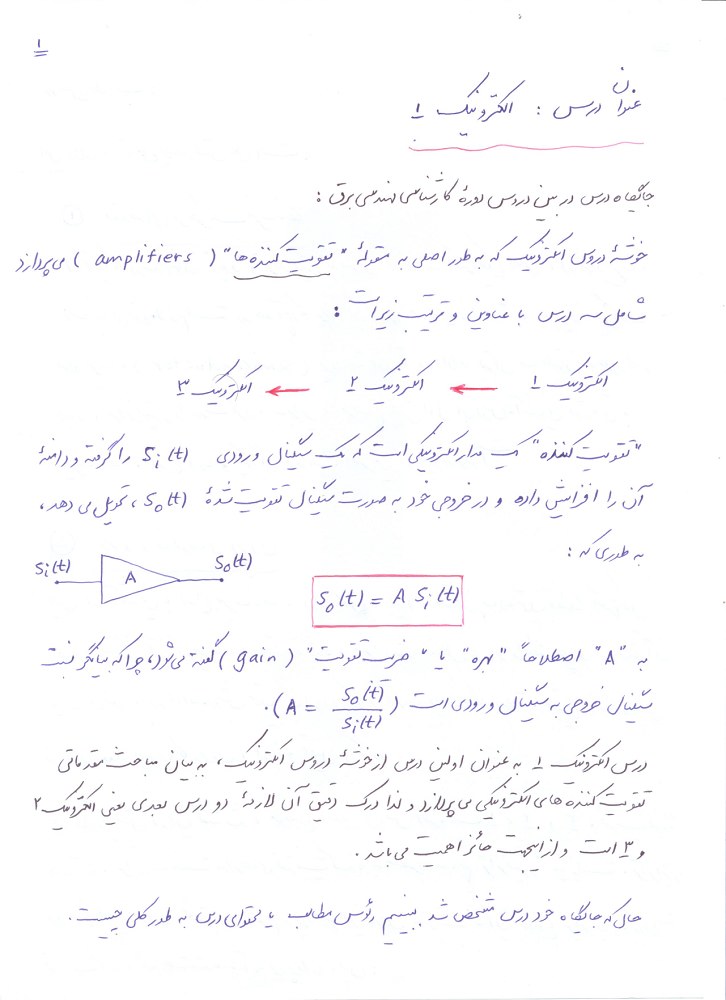 ۱
عنوان درس : الکترونیک ۱
جایگاه درس در بین دروس دورهٔ کارشناسی مهندسی برق :
خوشهٔ دروس الکترونیک که به طور اصلی به مقولهٔ "تقویت کننده‌ها" (amplifiers) می‌پردازد
شامل سه درس با عناوین و ترتیب زیر است :
الکترونیک ۱ ← الکترونیک ۲ ← الکترونیک ۳
"تقویت کننده" یک مدار الکترونیکی است که یک سیگنال ورودی Si(t) را گرفته و دامنهٔ
آن را افزایش داده و در خروجی خود به صورت سیگنال تقویت شدهٔ So(t) ، تحویل می دهد،
به طوری که :
Si(t) A So(t)
So(t) = A Si(t)
به "A" اصطلاحاً "بهره" یا "ضریب تقویت" (gain) گفته می‌شود، چرا که بیانگر نسبت
سیگنال خروجی به سیگنال ورودی است (A = So(t)/Si(t)).
درس الکترونیک ۱ به عنوان اولین درس از خوشهٔ دروس الکترونیک، به بیان مباحث مقدماتی
تقویت کننده های الکترونیکی می پردازد و لذا درک دقیق آن لازمهٔ دو درس بعدی یعنی الکترونیک ۲
و ۳ است و از اینجهت حائز اهمیت می باشد.
حال که جایگاه خود درس مشخص شد ببینیم رئوس مطالب یا محتوای درس به طور کلی چیست.